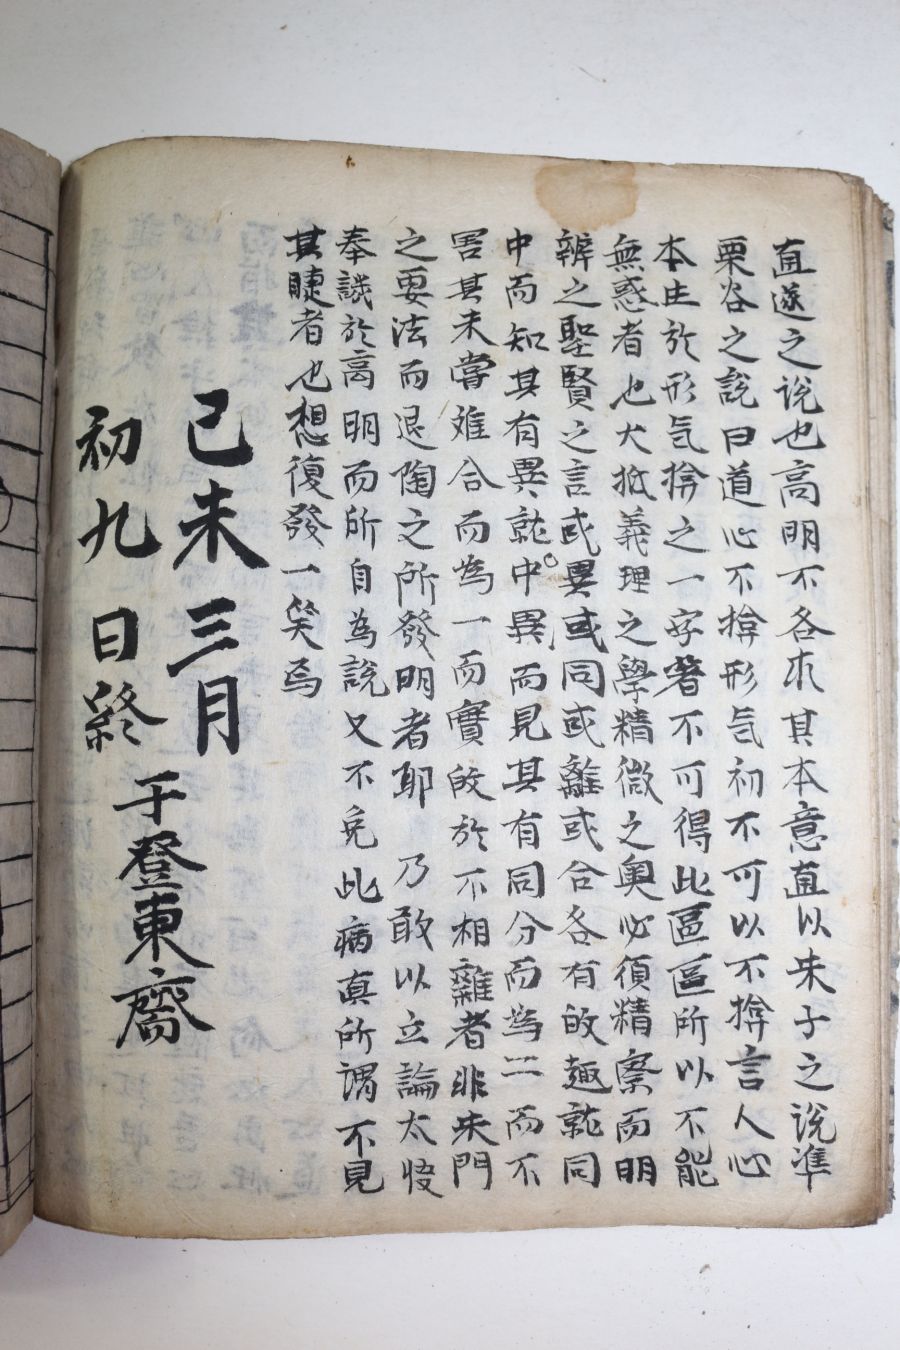 直遂之说也高明不各求其本意直以朱子之说准
栗谷之說曰道心不揜形气初不可以不揜言人心
本生於形气揜之一字著不可得此區區所以不能
無惑者也大抵義理之學精微之奧必須精察而明
辨之聖賢之言或異或同或離或合各有攸趣就同
中而知其有異就中異而見其有同分而為二而不
害其未嘗难合而為一而實的於不相離者非朱門
之要法而退陶之所發明者耶乃敢以立論太快
奉譏於高明而所自為說又不免此病真所謂不見
其睫者也想復發一笑焉
己未三月
初九日終
于登東齋